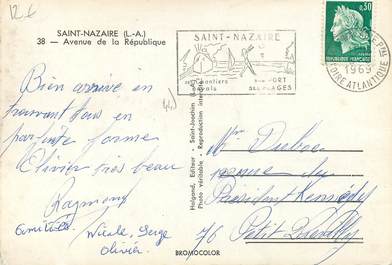 12 €
SAINT-NAZAIRE (L.-A.)
38 — Avenue de la République
SAINT-NAZAIRE
SES CHANTIERS
SON PORT
SES PLAGES
0,30
RÉPUBLIQUE FRANÇAISE
1969
LOIRE ATLANTIQUE
44
Bien arrivé en
trouvant tous en
parfaite forme
Olivier très beau
Raymond
amitiés
Nicole, Serge
Olivier
Hulgand, Editeur - Saint-Joachim
Photo véritable - Reproduction interdite
Mr Duboc
avenue du
Président Kennedy
76 Petit Quevilly
BROMOCOLOR